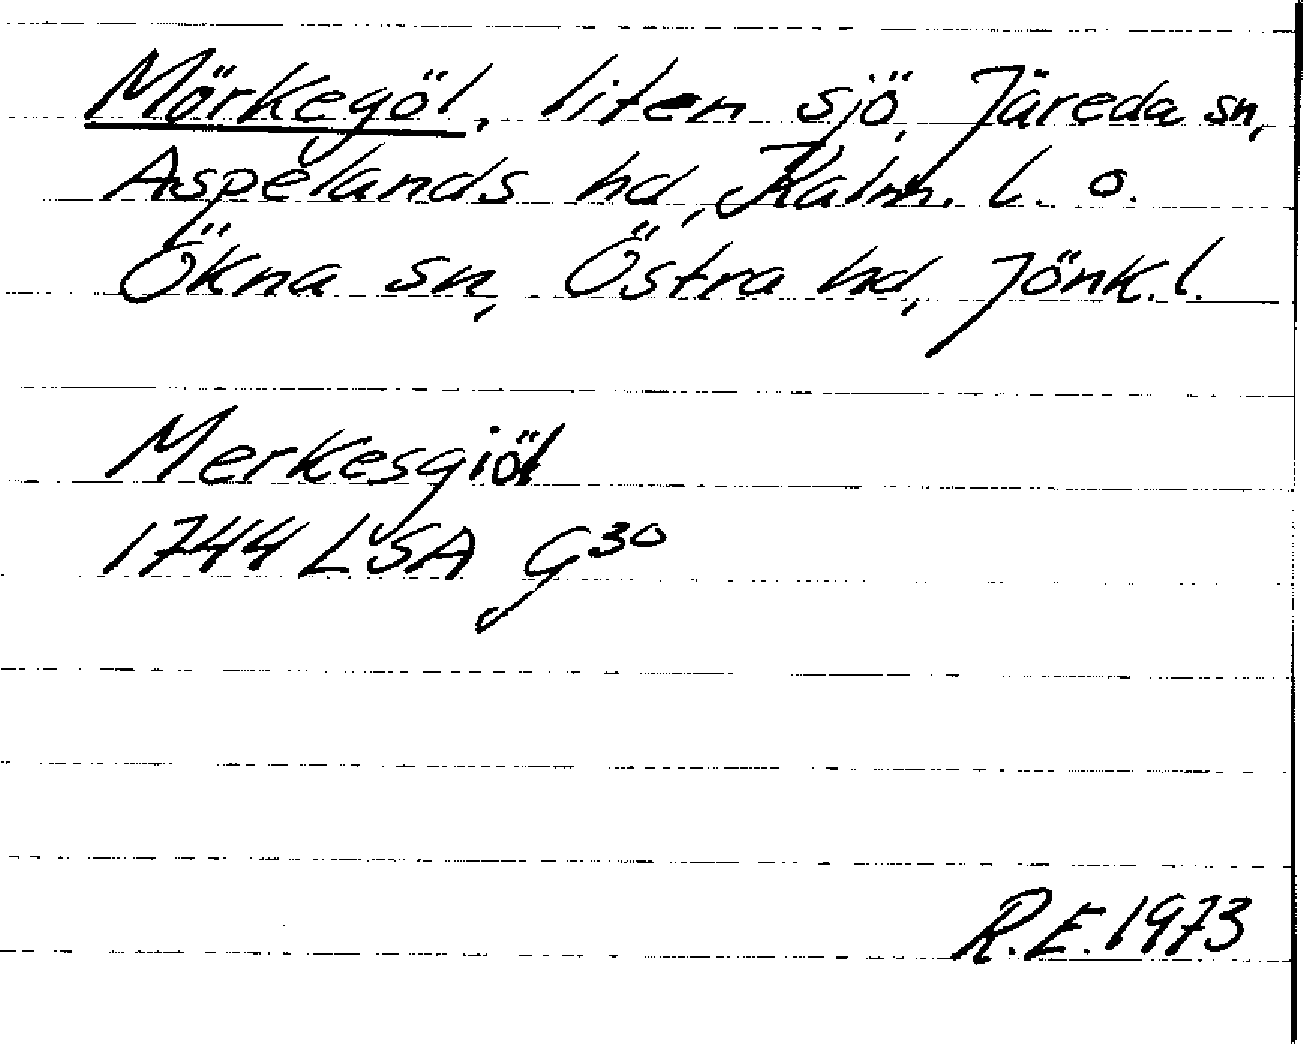 Mörkegöl, liten sjö, Järeda sn,
Aspelands hd, Kalm. l. o.
Ökna sn, Östra hd, Jönk. l.
Merkesgiöl
1744 LSA G30
R.E. 1973